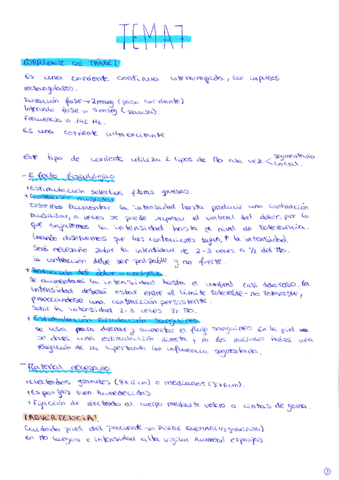 TEMA 7
CORRIENTE DE TRÄBERT
Es una corriente continua interrumpida, con impulsos
rectangulares.
Duración fase → 2mseg (paso corriente)
Intervalo fase → 5mseg (pausa)
Frecuencia → 142 Hz.
Es una corriente ultraexcitante.
Este tipo de corriente utiliza 2 tipos de tto a la vez segmentario
local.
- Efecto fisiológico
+ Estimulación selectiva fibras gruesas.
+ Contracción muscular
Debemos aumentar la intensidad hasta producir una contracción
muscular, a veces se puede superar el umbral del dolor, por lo
que bajaremos la intensidad hasta el nivel de tolerancia.
Cuando observemos que las contracciones bajan, ↑ la intensidad.
Será necesario subir la intensidad de 2-3 veces en ½ del tto.
La contracción debe ser palpable y no fuerte.
+ Reducción del dolor - analgesia
Se aumentará la intensidad hasta el umbral casi doloroso. La
intensidad deberá estar entre el límite tolerable - no tolerable,
provocándose una contracción persistente.
Subir la intensidad 2-3 veces ½ tto.
+ Estimulación circulación sanguínea
Se usa para drenar y aumentar el flujo sanguíneo. En la piel
se dará una estimulación directa y en los músculos habrá una
relajación de su hipertonía con influencia segmentaria.
- Material necesario
+ Electrodos grandes (8x12cm) o medianos (8x6cm).
+ Esponjas bien humedecidas
+ Fijación de electrodo al cuerpo mediante velcro o cintas de goma.
¡ADVERTENCIA!
Cuidado piel del paciente → PUEDE QUEMAR
En tto largos e intensidad alta vigilar humedad esponjas.
1